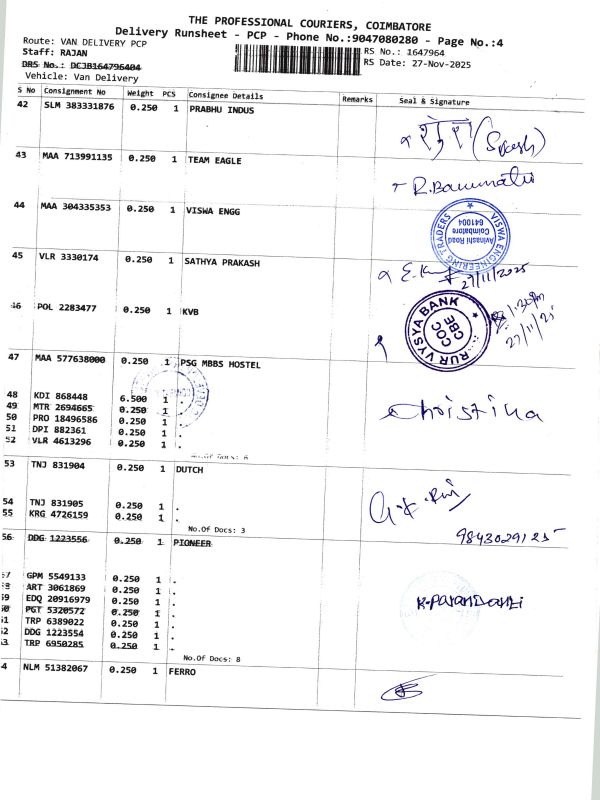 THE PROFESSIONAL COURIERS, COIMBATORE
Delivery Runsheet - PCP - Phone No.:9047080280 - Page No.:4
Route: VAN DELIVERY PCP
Staff: RAJAN
DRS No.: DCJB164796404
Vehicle: Van Delivery
RS No.: 1647964
RS Date: 27-Nov-2025
S No Consignment No Weight PCS Consignee Details Remarks Seal & Signature
42 SLM 383331876 0.250 1 PRABHU INDUS
43 MAA 713991135 0.250 1 TEAM EAGLE
44 MAA 304335353 0.250 1 VISWA ENGG
VISWA ENGINEERING TRADERS
Avinashi Road
Coimbatore
641004
45 VLR 3330174 0.250 1 SATHYA PRAKASH
27/11/2025
46 POL 2283477 0.250 1 KVB
KARUR VYSYA BANK
COC
CBE
1.30pm
27/11/25
47 MAA 577638000 0.250 1 PSG MBBS HOSTEL
48 KDI 868448 6.500 1 .
49 MTR 2694665 0.250 1 .
50 PRO 18496586 0.250 1 .
51 DPI 882361 0.250 1 .
52 VLR 4613296 0.250 1 .
Christina
No.Of Docs: 6
53 TNJ 831904 0.250 1 DUTCH
54 TNJ 831905 0.250 1 .
55 KRG 4726159 0.250 1 .
No.Of Docs: 3
9843029125
56 DDG 1223556 0.250 1 PIONEER
57 GPM 5549133 0.250 1 .
58 ART 3061869 0.250 1 .
59 EDQ 20916979 0.250 1 .
60 PGT 5320572 0.250 1 .
61 TRP 6389022 0.250 1 .
62 DDG 1223554 0.250 1 .
63 TRP 6950285 0.250 1 .
No.Of Docs: 8
64 NLM 51382067 0.250 1 FERRO